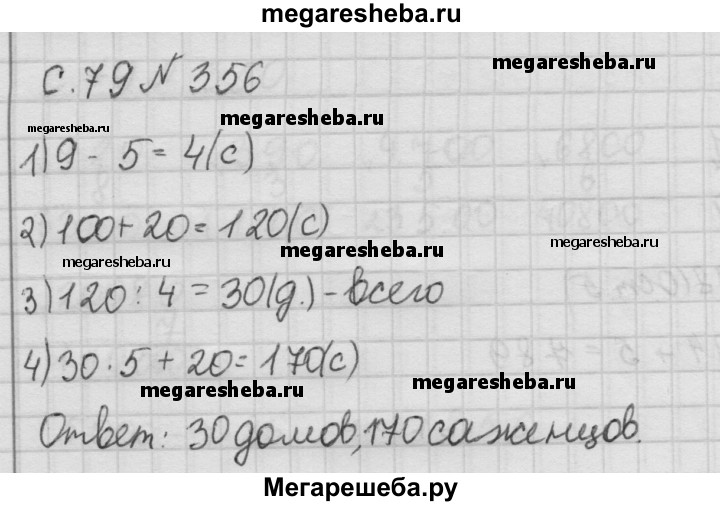 megaresheba.ru
с. 79 № 356
megaresheba.ru
megaresheba.ru
megaresheba.ru
1) 9 - 5 = 4(с)
2) 100 + 20 = 120(с)
megaresheba.ru
megaresheba.ru
megaresheba.ru
3) 120 : 4 = 30(д.) - всего
4) 30 · 5 + 20 = 170(с)
megaresheba.ru
megaresheba.ru
Ответ: 30 домов, 170 саженцов.
Мегарешеба.ру